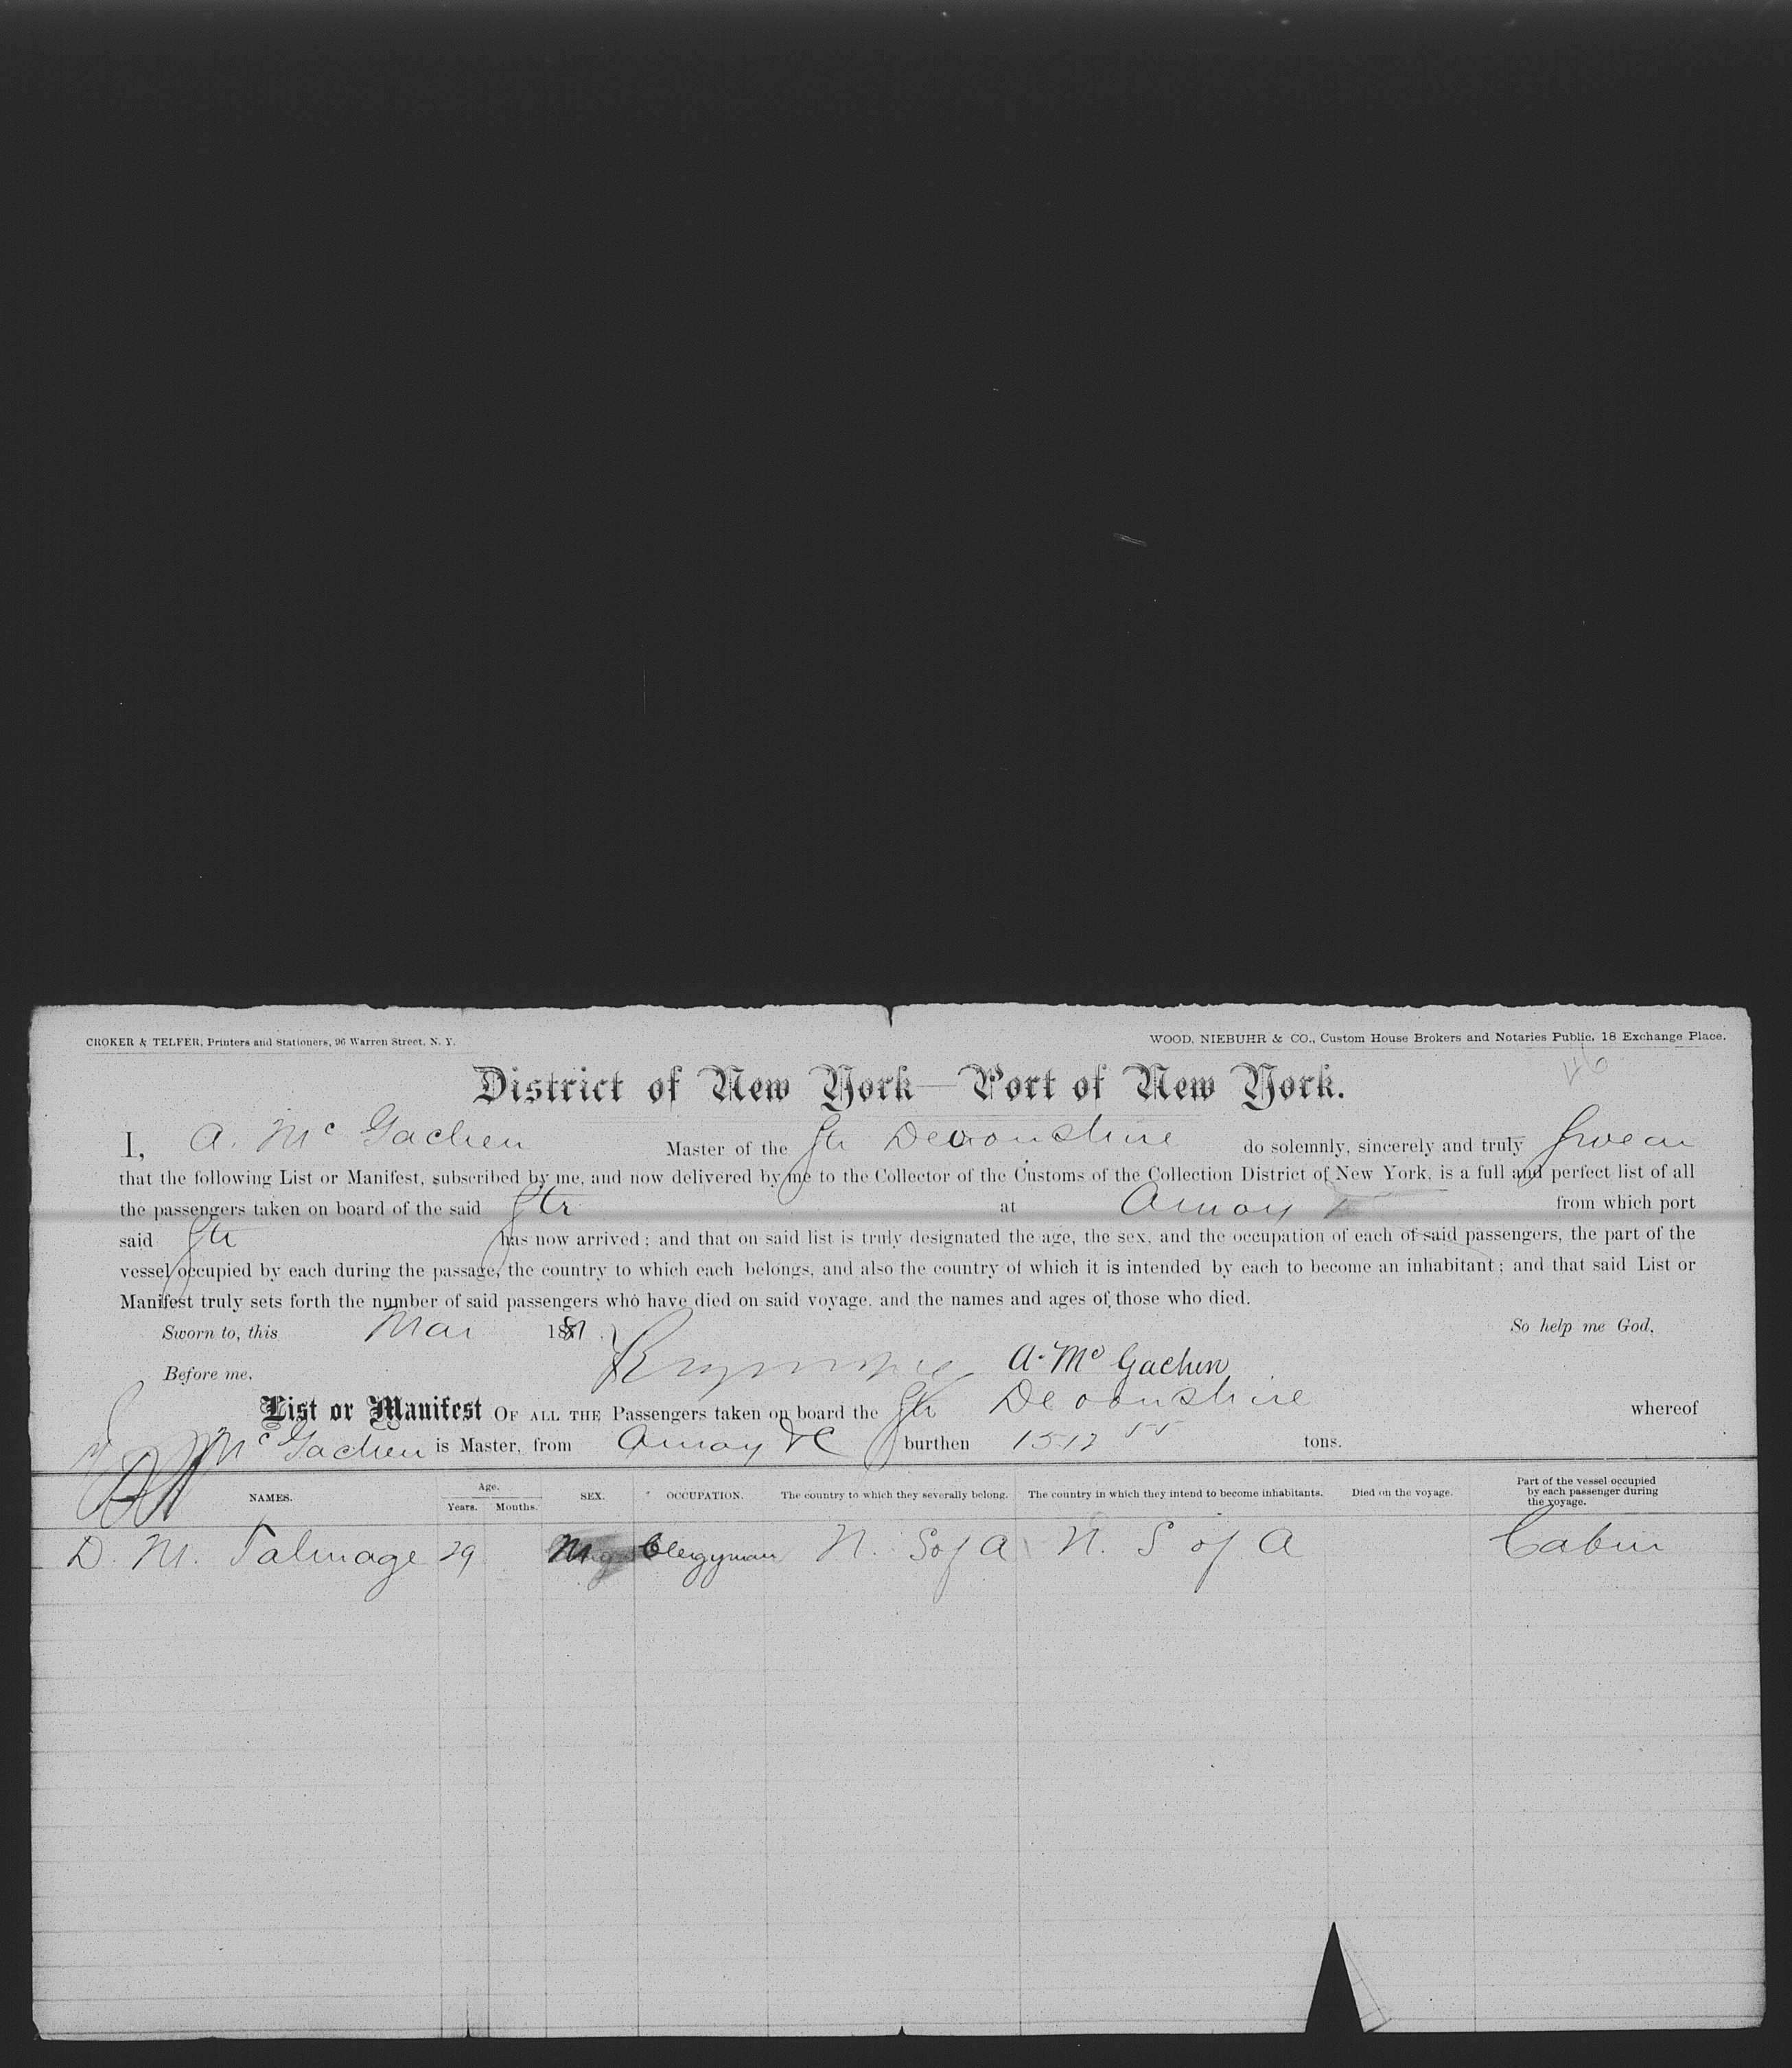 CROKER & TELFER, Printers and Stationers, 96 Warren Street, N. Y.
WOOD, NIEBUHR & CO., Custom House Brokers and Notaries Public, 18 Exchange Place.
46
District of New York—Port of New York.
I, A. Mc Gachen Master of the Str Devonshire do solemnly, sincerely and truly swear
that the following List or Manifest, subscribed by me, and now delivered by me to the Collector of the Customs of the Collection District of New York, is a full and perfect list of all
the passengers taken on board of the said Str at Amoy from which port
said Str has now arrived; and that on said list is truly designated the age, the sex, and the occupation of each of said passengers, the part of the
vessel occupied by each during the passage, the country to which each belongs, and also the country of which it is intended by each to become an inhabitant; and that said List or
Manifest truly sets forth the number of said passengers who have died on said voyage, and the names and ages of those who died.
Sworn to, this Mar 188 So help me God,
Before me, A. Mc Gachen
List or Manifest OF ALL THE Passengers taken on board the Str Devonshire whereof
Mc Gachen is Master, from Amoy &c burthen 1512 55 tons.
NAMES. Age. Years. Months. SEX. OCCUPATION. The country to which they severally belong. The country in which they intend to become inhabitants. Died on the voyage. Part of the vessel occupied by each passenger during the voyage.
D. M. Talmage 29 M Clergyman U. S of A U. S of A Cabin